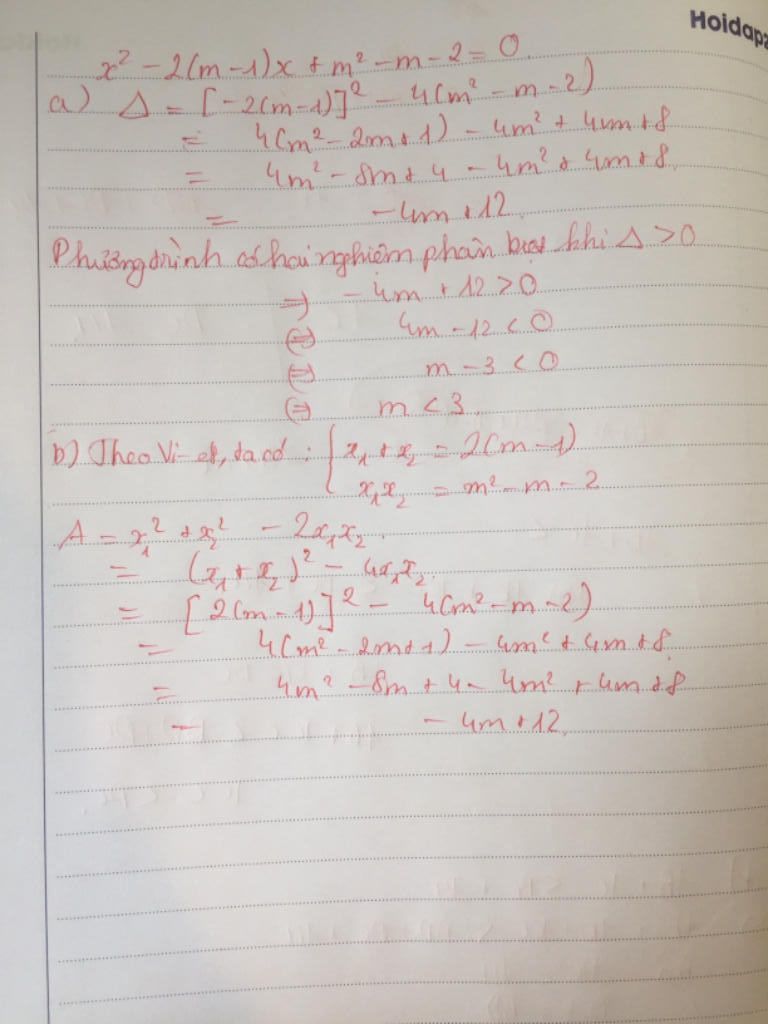 Hoidap2
x² - 2(m-1)x + m² - m - 2 = 0
a) Δ = [-2(m-1)]² - 4(m² - m - 2)
= 4(m² - 2m + 1) - 4m² + 4m + 8
= 4m² - 8m + 4 - 4m² + 4m + 8
= -4m + 12
Phương trình có hai nghiệm phân biệt khi Δ > 0
=> -4m + 12 > 0
<=> 4m - 12 < 0
<=> m - 3 < 0
<=> m < 3
b) Theo Vi-et, ta có : { x₁ + x₂ = 2(m-1)
x₁x₂ = m² - m - 2
A = x₁² + x₂² - 2x₁x₂
= (x₁ + x₂)² - 4x₁x₂
= [2(m-1)]² - 4(m² - m - 2)
= 4(m² - 2m + 1) - 4m² + 4m + 8
= 4m² - 8m + 4 - 4m² + 4m + 8
= -4m + 12